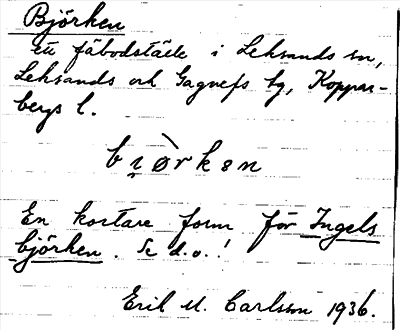 Björken
ett fäbodställe i Leksands sn,
Leksands och Gagnefs tg, Koppar-
bergs l.
En kortare form för Ingels
björken. Se d.o.!
Eril M. Carlsson 1936.